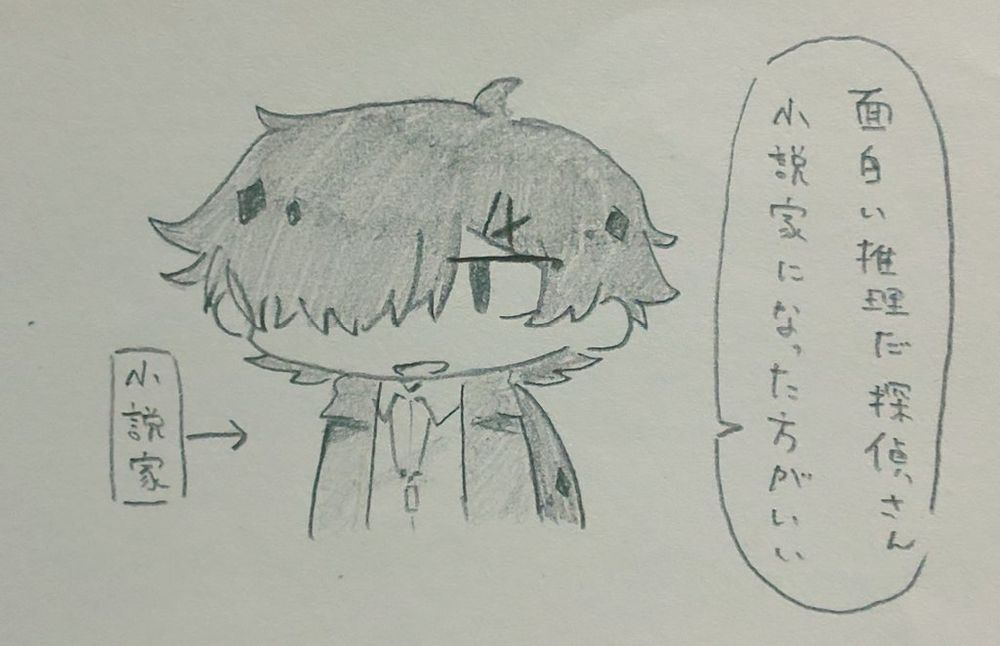 面白い推理だ探偵さん
小説家になった方がいい
小説家